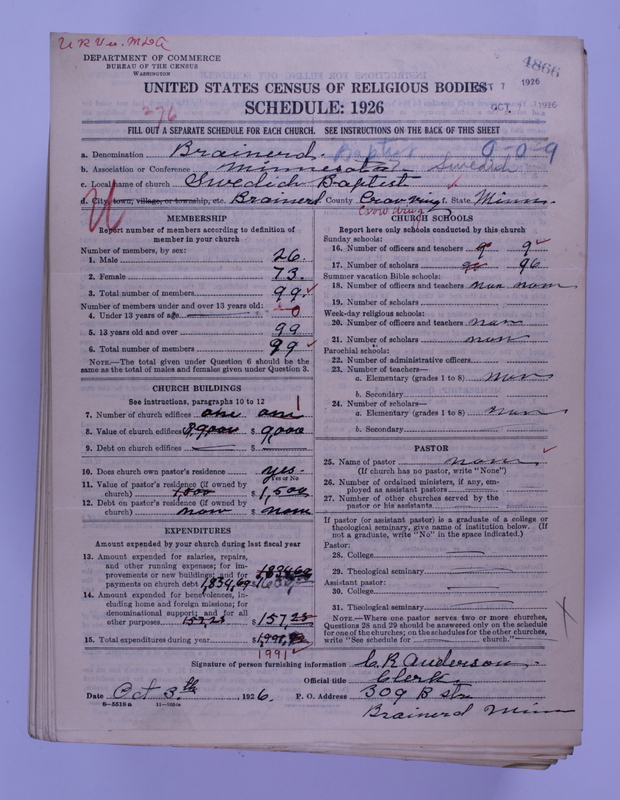 4866
DEPARTMENT OF COMMERCE
BUREAU OF THE CENSUS
WASHINGTON
1926
UNITED STATES CENSUS OF RELIGIOUS BODIES
SCHEDULE: 1926
OCT 1926
276
FILL OUT A SEPARATE SCHEDULE FOR EACH CHURCH. SEE INSTRUCTIONS ON THE BACK OF THIS SHEET
a. Denomination Brainerd. Baptist 0-0-9
b. Association or Conference Minnesota Swedish
c. Local name of church Swedish Baptist
d. City, town, village, or township, etc. Brainerd County Crow Wing f. State Minn.
Crow Wing
MEMBERSHIP
Report number of members according to definition of
member in your church
Number of members, by sex:
1. Male 26.
2. Female 73.
3. Total number of members 99
Number of members under and over 13 years old:
4. Under 13 years of age 0
5. 13 years old and over 99
6. Total number of members 99
NOTE.—The total given under Question 6 should be the
same as the total of males and females given under Question 3.
CHURCH BUILDINGS
See instructions, paragraphs 10 to 12
7. Number of church edifices one one 1
8. Value of church edifices $9,000 $ 9,000
9. Debt on church edifices $
10. Does church own pastor's residence yes.
Yes or No
11. Value of pastor's residence (if owned by
church) $ 1,500
12. Debt on pastor's residence (if owned by
church) $
EXPENDITURES
Amount expended by your church during last fiscal year
13. Amount expended for salaries, repairs,
and other running expenses; for im-
provements or new buildings; and for
payments on church debt 1,834,69 $
14. Amount expended for benevolences, in-
cluding home and foreign missions; for
denominational support; and for all
other purposes 157,23 $157,23
15. Total expenditures during year $
1991
CHURCH SCHOOLS
Report here only schools conducted by this church
Sunday schools:
16. Number of officers and teachers 9 9
17. Number of scholars 96 96
Summer vacation Bible schools:
18. Number of officers and teachers
19. Number of scholars
Week-day religious schools:
20. Number of officers and teachers
21. Number of scholars
Parochial schools:
22. Number of administrative officers
23. Number of teachers—
a. Elementary (grades 1 to 8)
b. Secondary
24. Number of scholars—
a. Elementary (grades 1 to 8)
b. Secondary
PASTOR
25. Name of pastor
(If church has no pastor, write "None")
26. Number of ordained ministers, if any, em-
ployed as assistant pastors
27. Number of other churches served by the
pastor or his assistants
If pastor (or assistant pastor) is a graduate of a college or
theological seminary, give name of institution below. (If
not a graduate, write "No" in the space indicated.)
Pastor:
28. College
29. Theological seminary
Assistant pastor:
30. College
31. Theological seminary
NOTE.—Where one pastor serves two or more churches,
Questions 28 and 29 should be answered only on the schedule
for one of the churches; on the schedules for the other churches,
write "See schedule for church."
Signature of person furnishing information C. R. Anderson.
Official title Clerk.
Date Oct 3.th, 1926. P. O. Address 309 B str.
Brainerd Minn